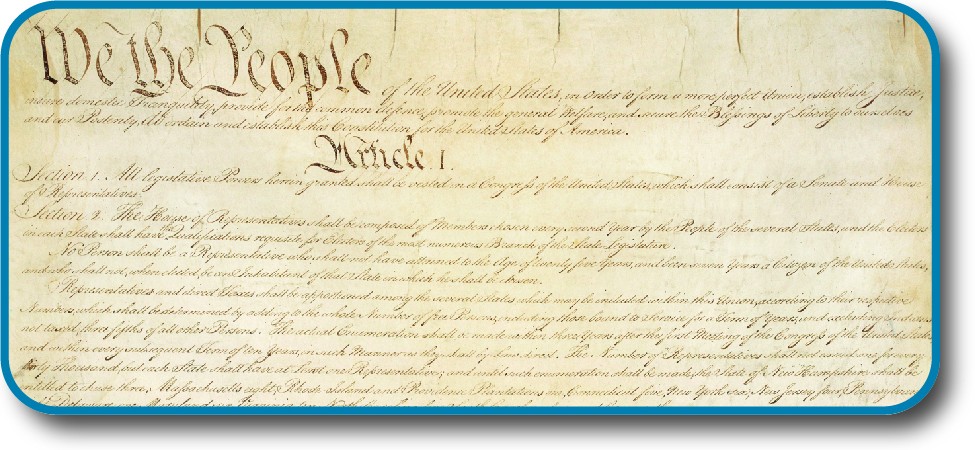 We the People of the United States, in Order to form a more perfect Union, establish Justice,
insure domestic Tranquility, provide for the common defence, promote the general Welfare, and secure the Blessings of Liberty to ourselves
and our Posterity, do ordain and establish this Constitution for the United States of America.
Article. I.
Section. 1. All legislative Powers herein granted shall be vested in a Congress of the United States, which shall consist of a Senate and House
of Representatives.
Section. 2. The House of Representatives shall be composed of Members chosen every second Year by the People of the several States, and the Electors
in each State shall have the Qualifications requisite for Electors of the most numerous Branch of the State Legislature.
No Person shall be a Representative who shall not have attained to the Age of twenty five Years, and been seven Years a Citizen of the United States,
and who shall not, when elected, be an Inhabitant of that State in which he shall be chosen.
Representatives and direct Taxes shall be apportioned among the several States which may be included within this Union, according to their respective
Numbers, which shall be determined by adding to the whole Number of free Persons, including those bound to Service for a Term of Years, and excluding Indians
not taxed, three fifths of all other Persons. The actual Enumeration shall be made within three Years after the first Meeting of the Congress of the United States,
and within every subsequent Term of ten Years, in such Manner as they shall by Law direct. The Number of Representatives shall not exceed one for every
thirty Thousand, but each State shall have at Least one Representative; and until such enumeration shall be made, the State of New Hampshire shall be
entitled to chuse three, Massachusetts eight, Rhode Island and Providence Plantations one, Connecticut five, New York six, New Jersey four, Pennsylvania
Delaware one, Maryland six, Virginia ten, North